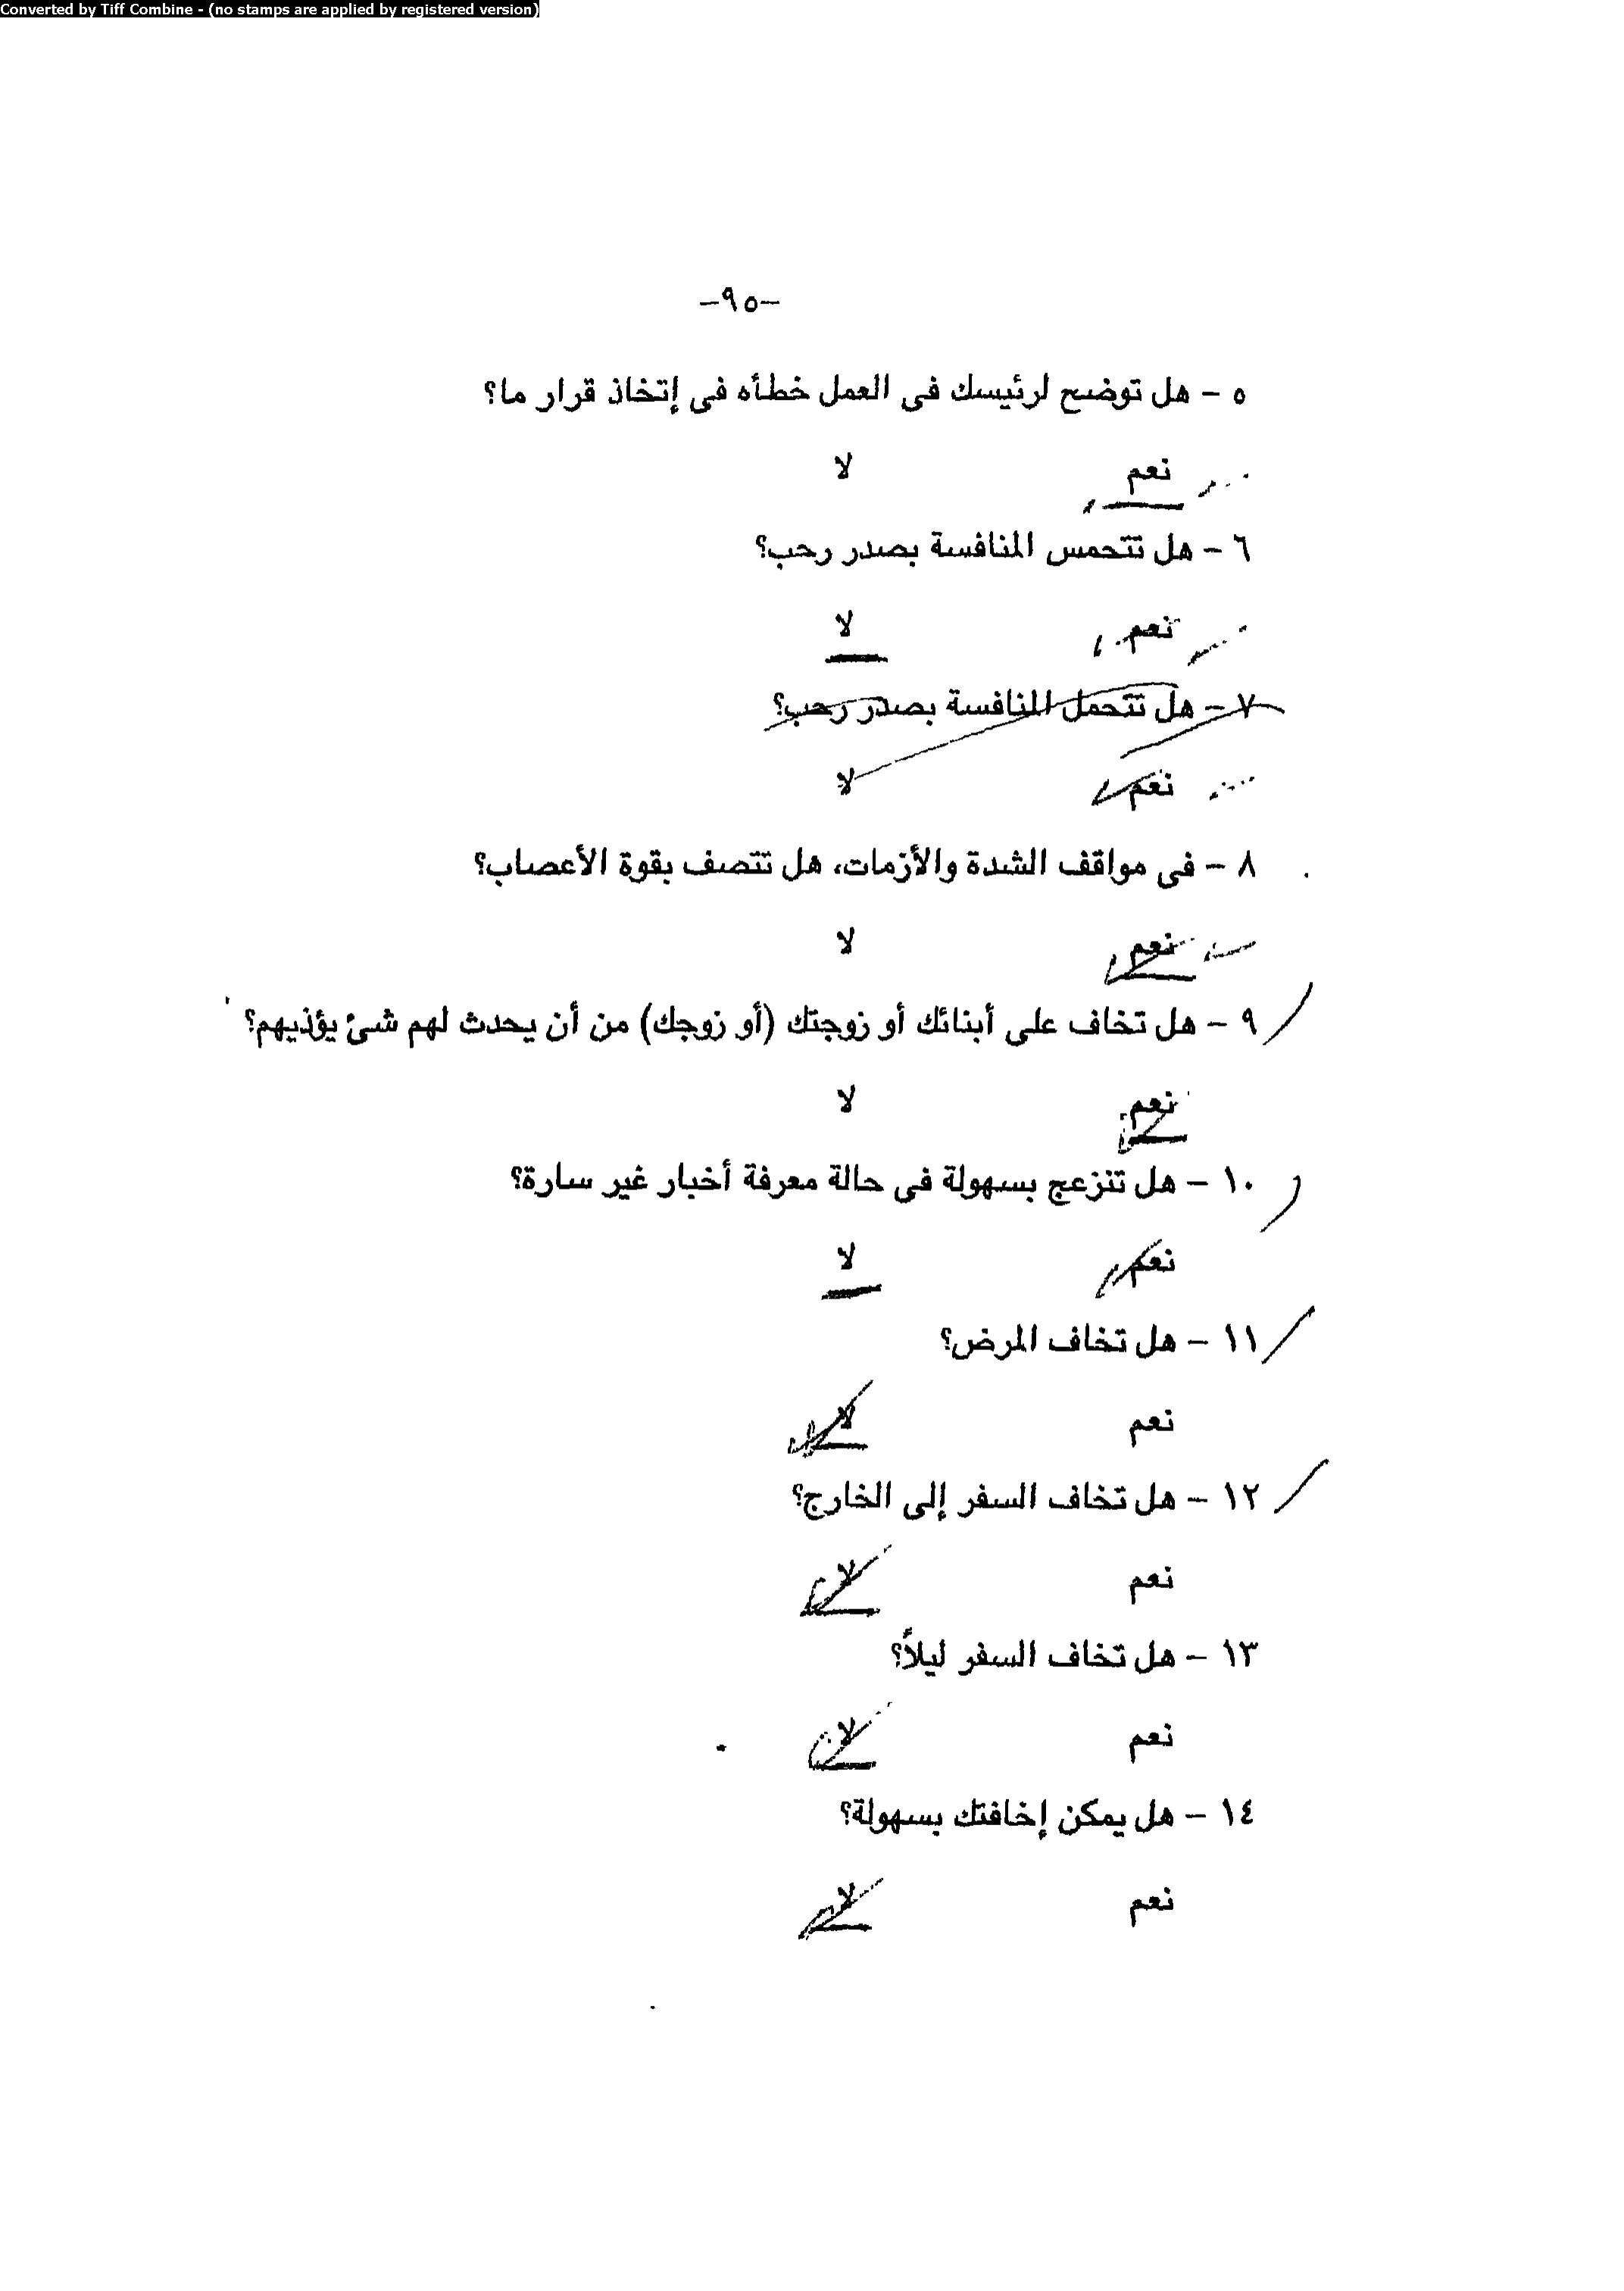 Converted by Tiff Combine - (no stamps are applied by registered version)
-٩٥-
٥ - هل توضح لرئيسك فى العمل خطأه فى إتخاذ قرار ما؟
نعم لا
٦ - هل تتحمس المنافسة بصدر رحب؟
نعم لا
٧ - هل تتحمل المنافسة بصدر رحب؟
نعم لا
٨ - فى مواقف الشدة والأزمات، هل تتصف بقوة الأعصاب؟
نعم لا
٩ - هل تخاف على أبنائك أو زوجتك (أو زوجك) من أن يحدث لهم شئ يؤذيهم؟
نعم لا
١٠ - هل تنزعج بسهولة فى حالة معرفة أخبار غير سارة؟
نعم لا
١١ - هل تخاف المرض؟
نعم لا
١٢ - هل تخاف السفر إلى الخارج؟
نعم لا
١٣ - هل تخاف السفر ليلاً؟
نعم لا
١٤ - هل يمكن إخافتك بسهولة؟
نعم لا